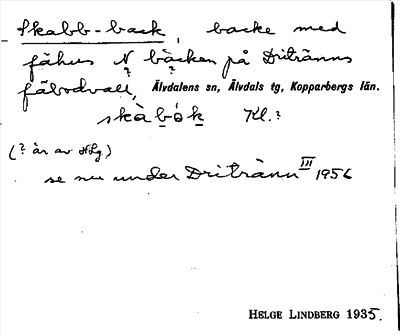 Skabb-back, backe med
fähus N bäcken på Dritränns
? ?
fäbodvall, Älvdalens sn, Älvdals tg, Kopparbergs län.
skàbók Kl.?
(? är av HLg)
se nu under Dritränn III 1956
HELGE LINDBERG 1935.